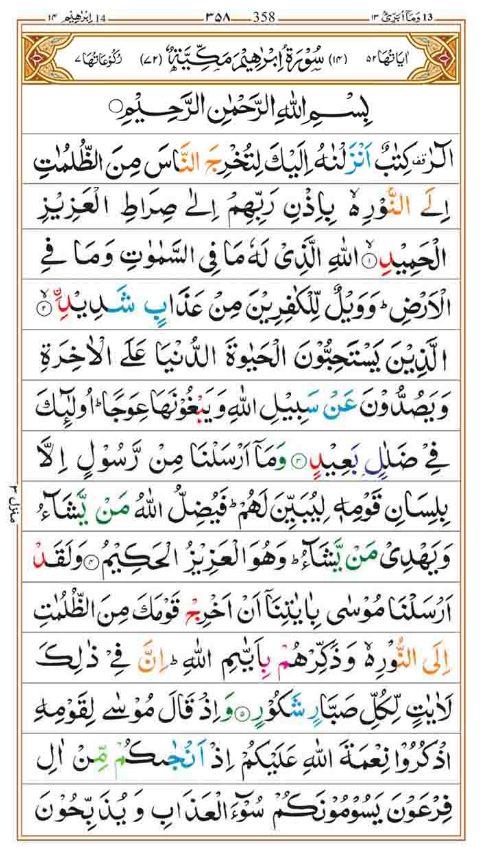 ابرٰهيم ١٤ 14 ٣٥٨ 358 وَمَآ اُبَرِّئُ ١٣ 13
اٰيَاتُهَا ٥٢ (١٤) سُوْرَةُ اِبْرٰهِيْمَ مَكِّيَّةٌ (٧٢) رُكُوْعَاتُهَا ٧
بِسْمِ اللّٰهِ الرَّحْمٰنِ الرَّحِيْمِ
الٓرٰ كِتٰبٌ اَنْزَلْنٰهُ اِلَيْكَ لِتُخْرِجَ النَّاسَ مِنَ الظُّلُمٰتِ
اِلَى النُّوْرِ ەۙ بِاِذْنِ رَبِّهِمْ اِلٰى صِرَاطِ الْعَزِيْزِ
الْحَمِيْدِۙ ﴿١﴾ اللّٰهِ الَّذِىْ لَهٗ مَا فِى السَّمٰوٰتِ وَمَا فِى
الْاَرْضِ‌ؕ وَوَيْلٌ لِّلْكٰفِرِيْنَ مِنْ عَذَابٍ شَدِيْدِۙ ﴿٢﴾
الَّذِيْنَ يَسْتَحِبُّوْنَ الْحَيٰوةَ الدُّنْيَا عَلَى الْاٰخِرَةِ
وَيَصُدُّوْنَ عَنْ سَبِيْلِ اللّٰهِ وَيَبْغُوْنَهَا عِوَجًا‌ؕ اُولٰٓٮِٕكَ
فِىْ ضَلٰلٍۢ بَعِيْدٍ ﴿٣﴾ وَمَاۤ اَرْسَلْنَا مِنْ رَّسُوْلٍ اِلَّا
بِلِسَانِ قَوْمِهٖ لِيُبَيِّنَ لَهُمْ‌ؕ فَيُضِلُّ اللّٰهُ مَنْ يَّشَآءُ
وَيَهْدِىْ مَنْ يَّشَآءُ‌ؕ وَهُوَ الْعَزِيْزُ الْحَكِيْمُ ﴿٤﴾ وَلَقَدْ
اَرْسَلْنَا مُوْسٰى بِاٰيٰتِنَاۤ اَنْ اَخْرِجْ قَوْمَكَ مِنَ الظُّلُمٰتِ
اِلَى النُّوْرِ ەۙ وَذَكِّرْهُمْ بِاَيّٰٮمِ اللّٰهِ‌ؕ اِنَّ فِىْ ذٰلِكَ
لَاٰيٰتٍ لِّكُلِّ صَبَّارٍ شَكُوْرٍ ﴿٥﴾ وَاِذْ قَالَ مُوْسٰى لِقَوْمِهِ
اذْكُرُوْا نِعْمَةَ اللّٰهِ عَلَيْكُمْ اِذْ اَنْجٰٮكُمْ مِّنْ اٰلِ
فِرْعَوْنَ يَسُوْمُوْنَكُمْ سُوْٓءَ الْعَذَابِ وَ يُذَبِّحُوْنَ
منزل ٣